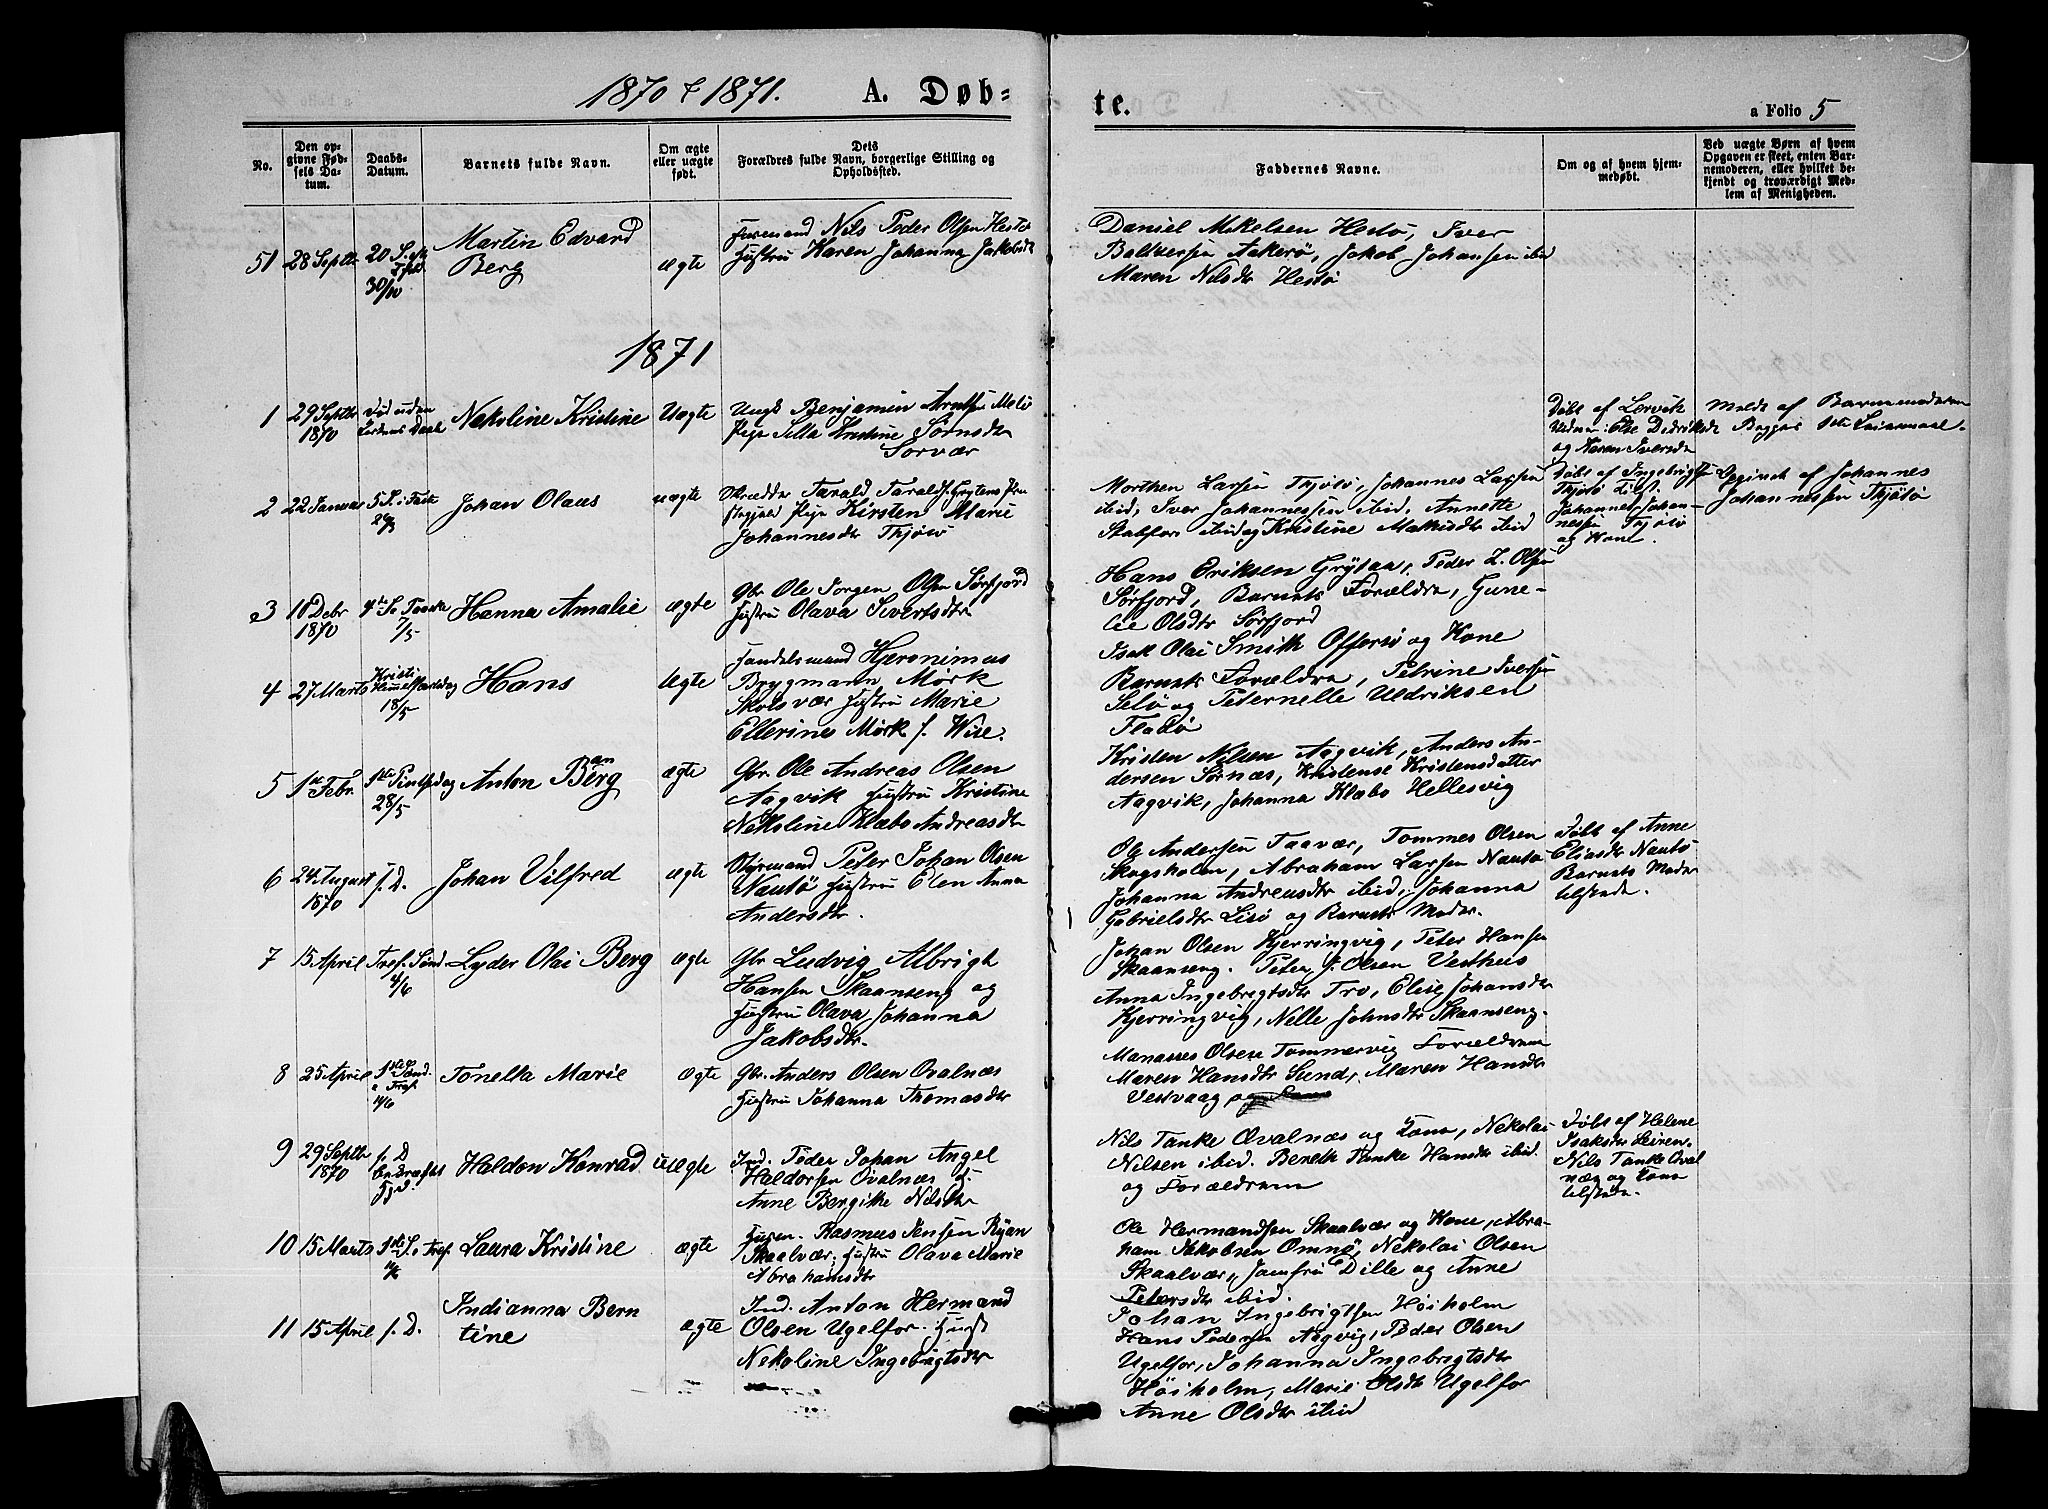 1870 & 1871. A. Døb-
te. a Folio 5
No.
Den op-
givne Fød-
sels Da-
tum.
Daabs-
Datum.
Barnets fulde Navn.
Om ægte
eller uægte
født.
Dets
Forældres fulde Navn, borgerlige Stilling og
Opholdssted.
Faddernes Navne.
Om og af hvem hjem-
medøbt.
Ved uægte Børn af hvem
Opgaven er skeet, enten Bar-
nemoderen, eller hvilket be-
kjendt og troværdigt Med-
lem af Menigheden.
51 28 Septbr 20 S. e.
30/10
Martin Edvard
Berg
ægte
Nils Peder Olsen Hestø
Hustru Karen Johanna Jakobsdr
Daniel Mikelsen Hestø, Iver
Aakerø, Jakob Johansen ibid
Maren Nilsdr Hestø
1871
1 29 Septbr
1870
Død uden
Daab
Nekoline Kristine
Uægte
Ungk Benjamin
Pige Kristine Sørnsdr
Sorvær
Døbt af
Else
og Karen Iversdr
Melde af Barnemoderen
Begges
2 22 Januar 5 S. i Faste
26/3
Johan Olaus
uægte
Tarald
Pige Kirsten Marie
Johannesdr Thjøtø
Morthen Larsen Thjøtø, Johannes Larsen
ibid, Iver Johannessen ibid, Annette
ibid og Kristine ibid
Døbt af Ingebrigt
Thjøtø
Johannes Johan-
nessen Thjøtø
og Kone.
af Johannes
Johannessen Thjøtø
3 10 Debr
1870
7/5
Hanna Amalie
ægte
Gbr Ole Jørgen Olsen Sørfjord
Hustru Olava Sivertsdtr
Hans Eriksen Grytaa, Peder L. Olsen
Sørfjord, Barnets Forældre, Gune-
lie Olsdtr Sørfjord
4 27 Marts Kristi
Himmelfartsdag
18/5
Hans
ægte
Handelsmand Hjeronimus
Brygmann Mørk
Skolsvær Hustru Marie
Ellerines Mørk f. Wise.
Isak Olai Smith Offersø og Kone
Barnets Forældre, Petrine Iversen
og Peternelle Uldriksen
Flatø
5 1st Febr. 1ste Pintsedag
28/5
Anton Berg
an
ægte
Gbr Ole Andreas Olsen
Aagvik Hustru Kristine
Nekoline Klæbo Andreasdtr
Kristen Nilsen Aagvik, Anders An-
dersen Sørnæs, Kristense Kristensdatter
Aagvik, Johanna Klæbo Hellesvig
6 24 August
1870
s. D.
Johan Vilfred
ægte
Styrmand Peter Johan Olsen
Nautø Hustru Elen Anna
Andersdtr.
Ole Andersen Taavær, Tommes Olsen
Skogsholm, Abraham Larsen Nautø
Johanna Andreasdtr ibid, Johanna
Gabrielsdtr Lisø og Barnets Moder.
Døbt af Anne
Eliasdr Nautø
Barnets Moder
tilstede.
7 15 April Tref. Sønd.
4/6
Lyder Olai Berg
ægte
Gbr Ludvig Albrigt
Hansen Skaanseng og
Hustru Olava Johanna
Jakobsdtr.
Johan Olsen Kjerringvig, Peter Hansen
Skaanseng. Peter J. Olsen Vesthus
Anna Ingebrigtsdtr Tro, Elise Johansdtr
Kjerringvig, Nelle Johnsdtr Skaanseng.
8 25 April 1ste Sønd.
e Tref.
11/6
Tonetta Marie
ægte
Gbr. Anders Olsen Ovalnæs
Hustru Johanna Thomasdtr
Manasses Olsen Tommervig Forældrene
Maren Hansdtr Sund, Maren Hansdtr
Vestvaag og
9 29 Septbr
1870
s. D
Haldon Konrad
uægte
Ind. Peder Johan Angel
Haldorsen Ovalnæs
Anne Bergitte Nilsdtr
Nils Tanke Ovalnæs og Kone, Nekolai
Nilsen ibid. Bereth Tanke Hansdtr ibid
og Forældrene
Døbt af Helene
Isaksen
Nils Tanke Oval
næs og Kone
tilstede.
10 15 Marts 1ste S. e Tref.
11/6
Laura Kristine
ægte
Rasmus Jensen Ryan
Skaalvær, Hustru Olava Marie
Abrahamsdtr
Ole Hermandsen Skaalvær og Kone, Abra-
ham Jakobsen Omnø, Nekolai Olsen
Skaalvær, Jomfru Dille og Anne
Petersdtr ibid.
11 15 April s. D.
Indianna Bern
tine
ægte
Ind. Anton Hermand
Olsen Ugelfor. Hust
Nekoline Ingebrigtsdtr
Johan Ingebrigtsen Høiholm
Hans Pedersen Aagvig, Peder Olsen
Ugelfor, Johanna Ingebrigtsdtr
Høiholm, Marie Olsdtr Ugelfor
Anne Olsdtr ibid